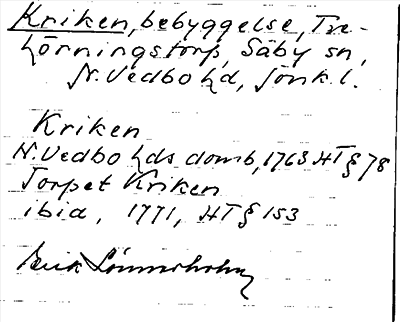 Kriken, bebyggelse, Tre-
hörningstorp, Säby sn,
N. Vedbo hd, Jönk. l.
Kriken
N. Vedbo hds domb, 1763 HT § 78
Torpet Kriken
ibid, 1771, HT § 153
Erik